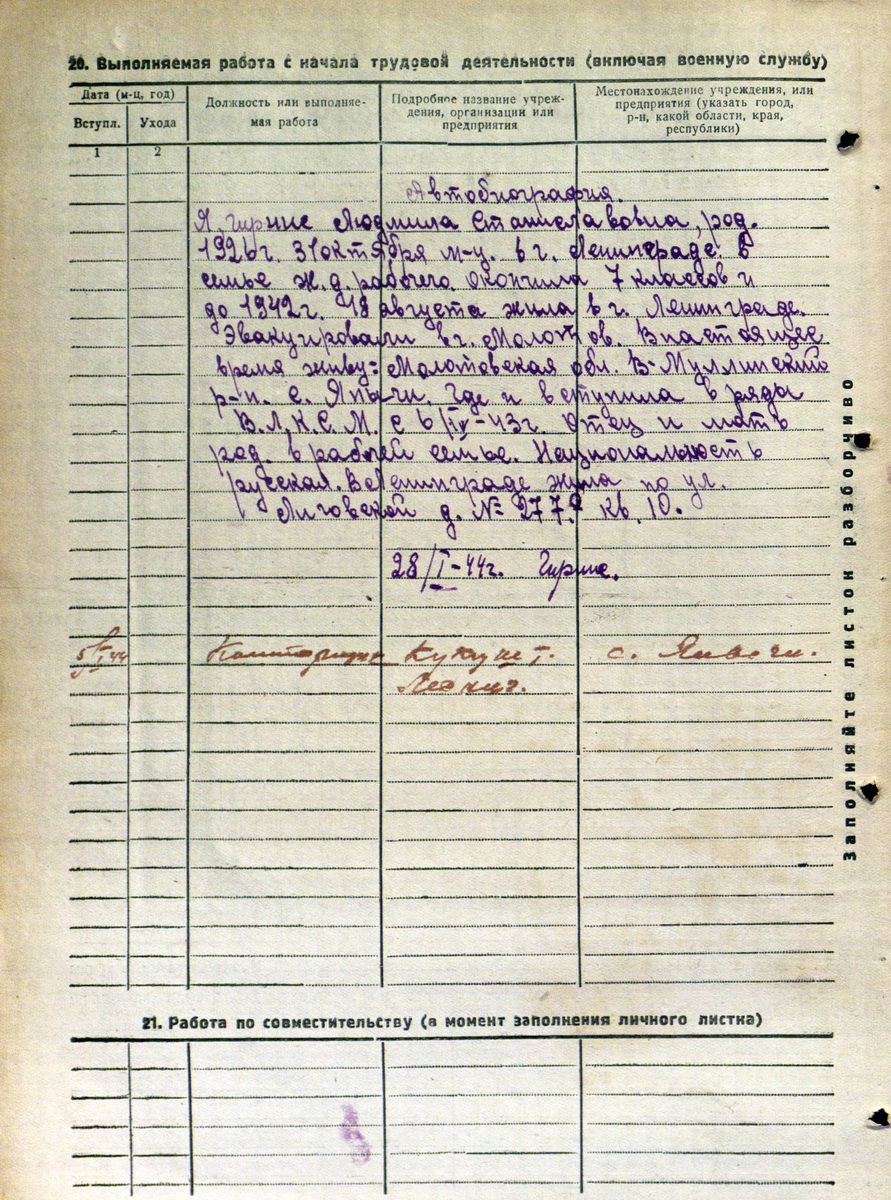 20. Выполняемая работа с начала трудовой деятельности (включая военную службу)
Дата (м-ц, год)
Вступл.
Ухода
Должность или выполняе-
мая работа
Подробное название учреж-
дения, организации или
предприятия
Местонахождение учреждения, или
предприятия (указать город,
р-н, какой области, края,
республики)
1
2
Автобиография.
Я, Гирнис Людмила Станиславовна, род.
1926г. 31 октября м-ц. в г. Ленинграде. В
семье ж.д. рабочего. Окончила 7 классов и
до 1942г. 18 августа жила в г. Ленинграде.
Эвакуировали в г. Молотов. В настоящее
время живу: Молотовская обл. В-Муллинский
р-н. с. Янычи. Где и вступила в ряды
В.Л.К.С.М. с 6/IV-43г. Отец и мать
род. в рабочей семье. Национальность
русская. В Ленинграде жила по ул.
Лиговской д. № 277. кв. 10.
28/I-44г. Гирнис.
с. Янычи.
Заполняйте листок разборчиво
21. Работа по совместительству (в момент заполнения личного листка)